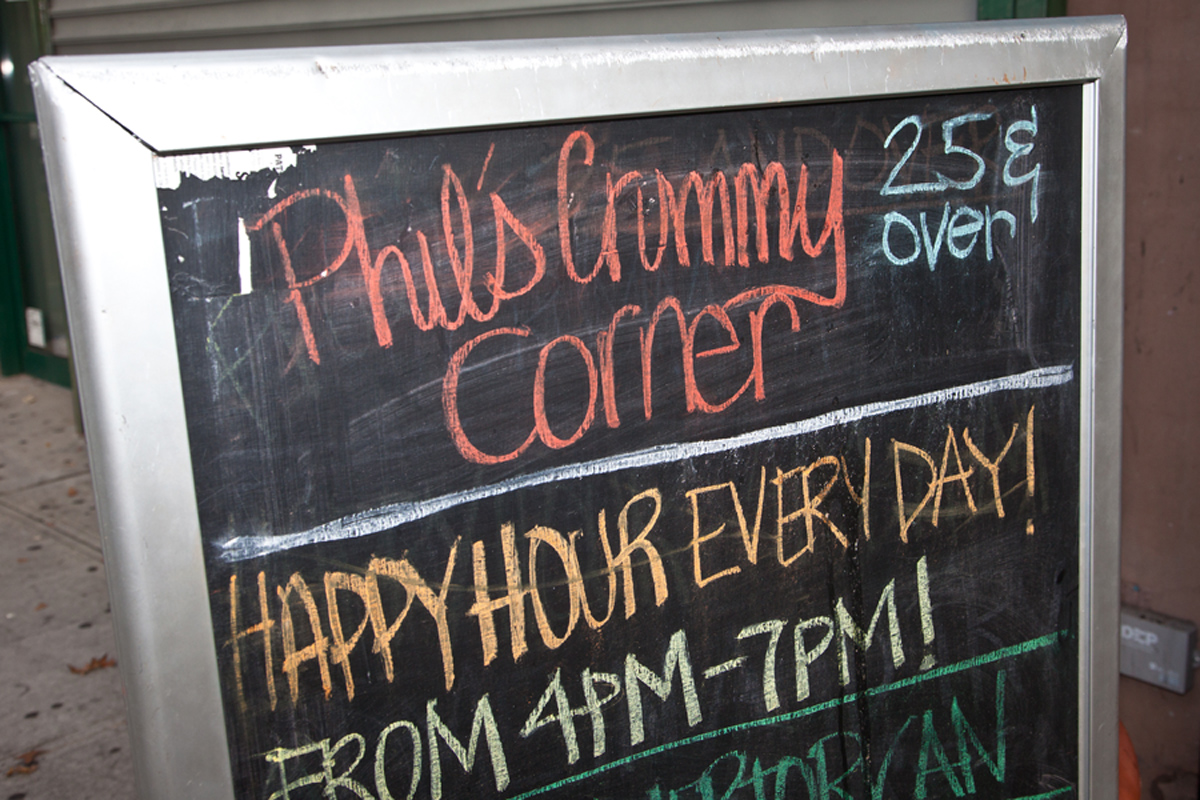 Phil's Crummy
Corner
25 &
over
HAPPY HOUR EVERY DAY!
FROM 4PM-7PM!